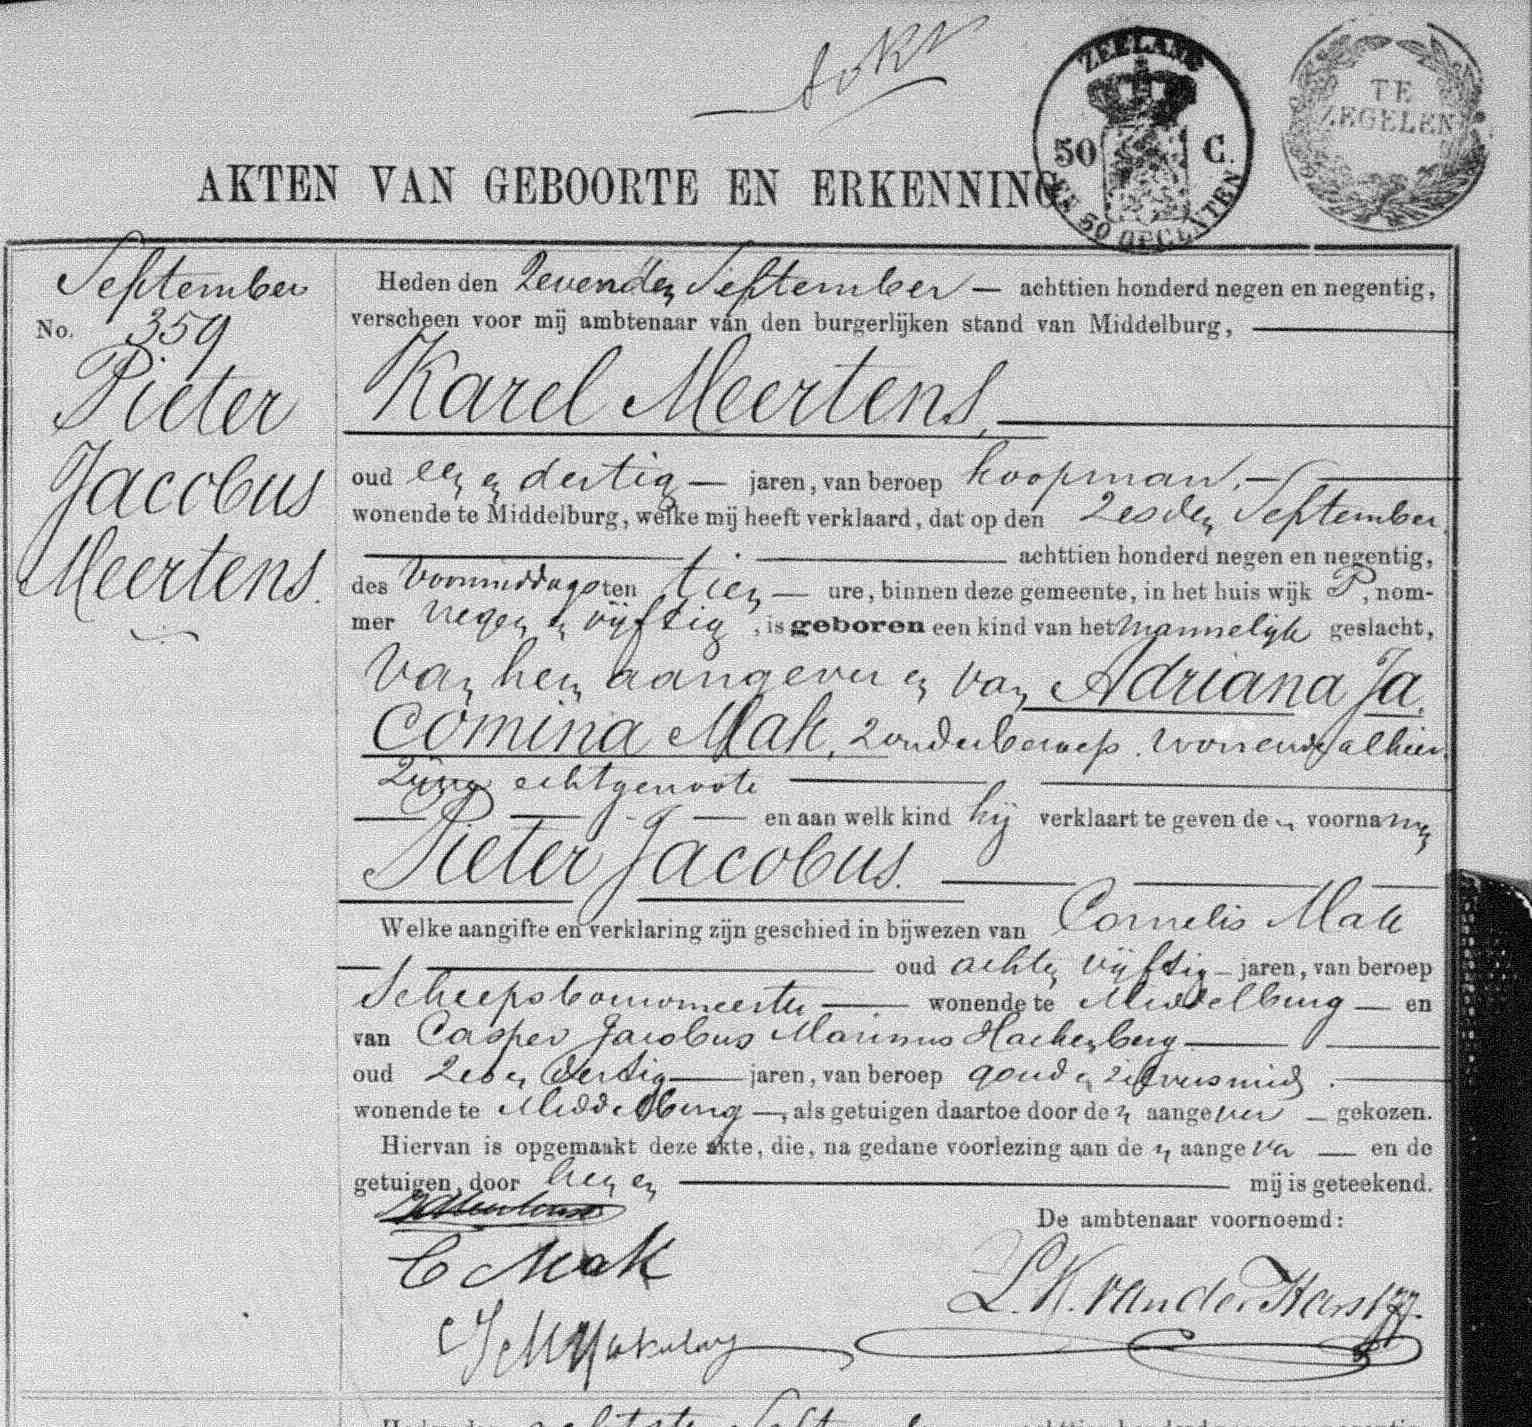 ZEELAND
50 C.
EN 50 OPCENTEN
TE
ZEGELEN
AKTEN VAN GEBOORTE EN ERKENNING
September
No. 359
Pieter
Jacobus
Meertens.
Heden den Zevenden September — achttien honderd negen en negentig,
verscheen voor mij ambtenaar van den burgerlijken stand van Middelburg, —
Karel Meertens, —
oud een en dertig — jaren, van beroep koopman, —
wonende te Middelburg, welke mij heeft verklaard, dat op den Zesden September
— achttien honderd negen en negentig,
des voormiddags ten tien — ure, binnen deze gemeente, in het huis wijk P, nom-
mer negen en vijftig, is geboren een kind van het mannelijk geslacht,
van hem aangever en van Adriana Ja
comina Mak, zonder beroep, wonende alhier,
zijne echtgenoote —
— en aan welk kind hij verklaart te geven de n voornamen
Pieter Jacobus. —
Welke aangifte en verklaring zijn geschied in bijwezen van Cornelis Mak
— oud acht en vijftig — jaren, van beroep
Scheepsbouwmeester — wonende te Middelburg — en
van Casper Jacobus Marinus Hackenberg —
oud zes en dertig — jaren, van beroep goud en zilversmid, —
wonende te Middelburg —, als getuigen daartoe door den aangever — gekozen.
Hiervan is opgemaakt deze akte, die, na gedane voorlezing aan den aangever — en de
getuigen, door hen en — mij is geteekend.
De ambtenaar voornoemd:
C Mak